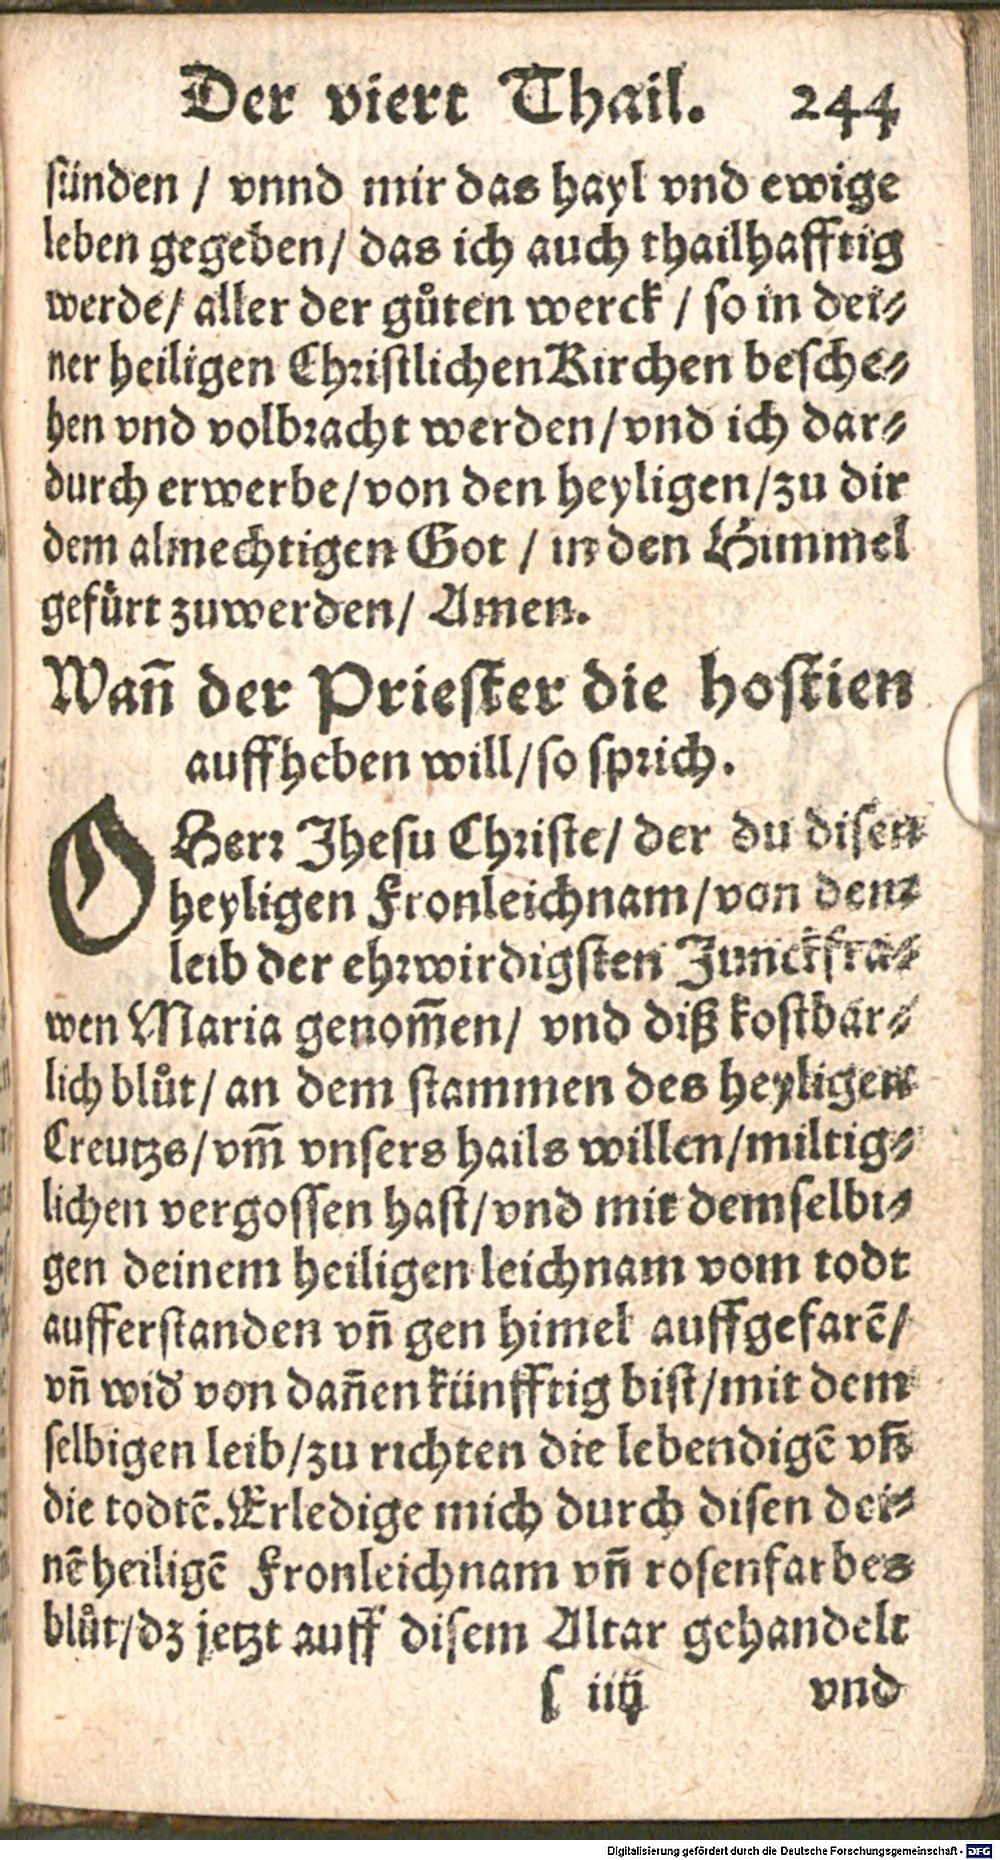 Der viert Thail. 244
sünden / vnnd mir das hayl vnd ewige
leben gegeben / das ich auch thailhafftig
werde / aller der gůten werck / so in dei⸗
ner heiligen Christlichen Kirchen besche⸗
hen vnd volbracht werden / vnd ich dar⸗
durch erwerbe / von den heyligen / zu dir
dem almechtigen Got / in den Himmel
gefürt zuwerden / Amen.
Wañ der Priester die hostien
auffheben will / so sprich.
O Herr Jhesu Christe / der du disen
heyligen Fronleichnam / von dem
leib der ehrwirdigsten Junckfra⸗
wen Maria genom̃en / vnd diß kostbar⸗
lich blůt / an dem stammen des heyligen
Creutzs / vm̃ vnsers hails willen / miltig⸗
lichen vergossen hast / vnd mit demselbi⸗
gen deinem heiligen leichnam vom todt
aufferstanden vñ gen himel auffgefarẽ /
vñ wid' von dañen künfftig bist / mit dem
selbigen leib / zu richten die lebendigẽ vñ
die todtẽ. Erledige mich durch disen dei⸗
nẽ heiligẽ Fronleichnam vñ rosenfarbes
blůt / dz jetzt auff disem Altar gehandelt
s iiij vnd
Digitalisierung gefördert durch die Deutsche Forschungsgemeinschaft - DFG